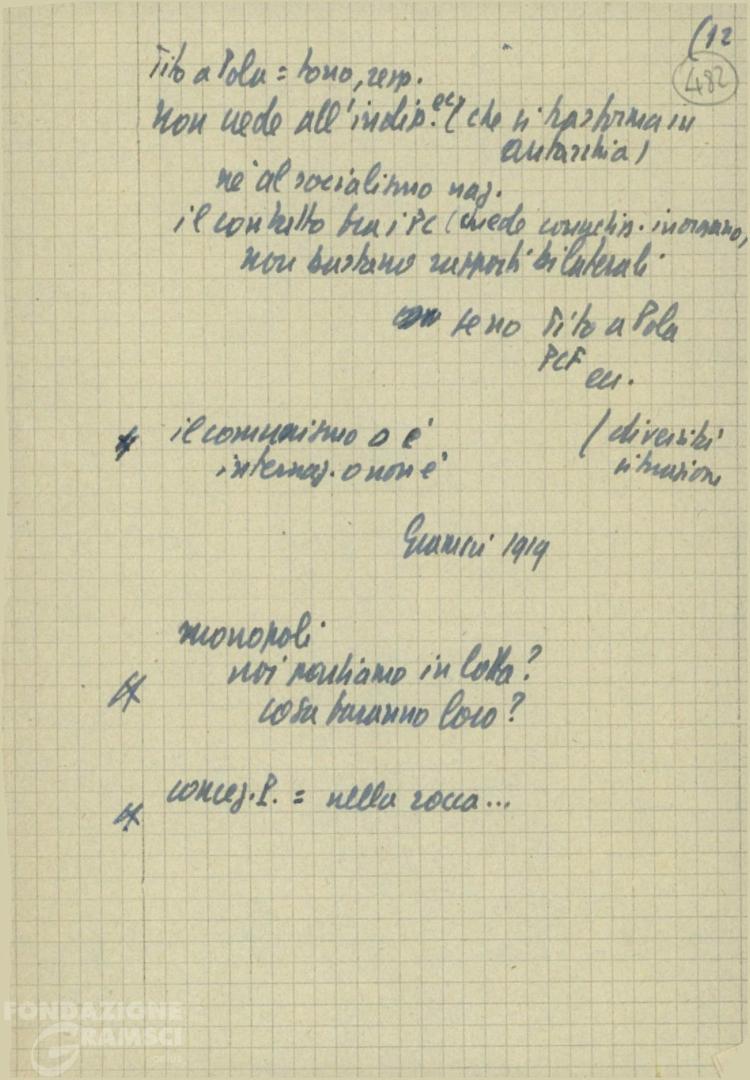 (12
482
Tito a Pola = tono, resp.
Non crede all'indip. ec. (che si trasforma in
autarchia)
né al socialismo naz.
il contatto tra i PC (crede
non bastano rapporti bilaterali
seno Tito a Pola
PCF
ecc.
il comunismo o è
internaz. o non è
(diversità
situazione
Gramsci 1919
monopoli
noi portiamo in lotta?
cosa faranno loro?
concez. P. = nella rocca...
FONDAZIONE
GRAMSCI